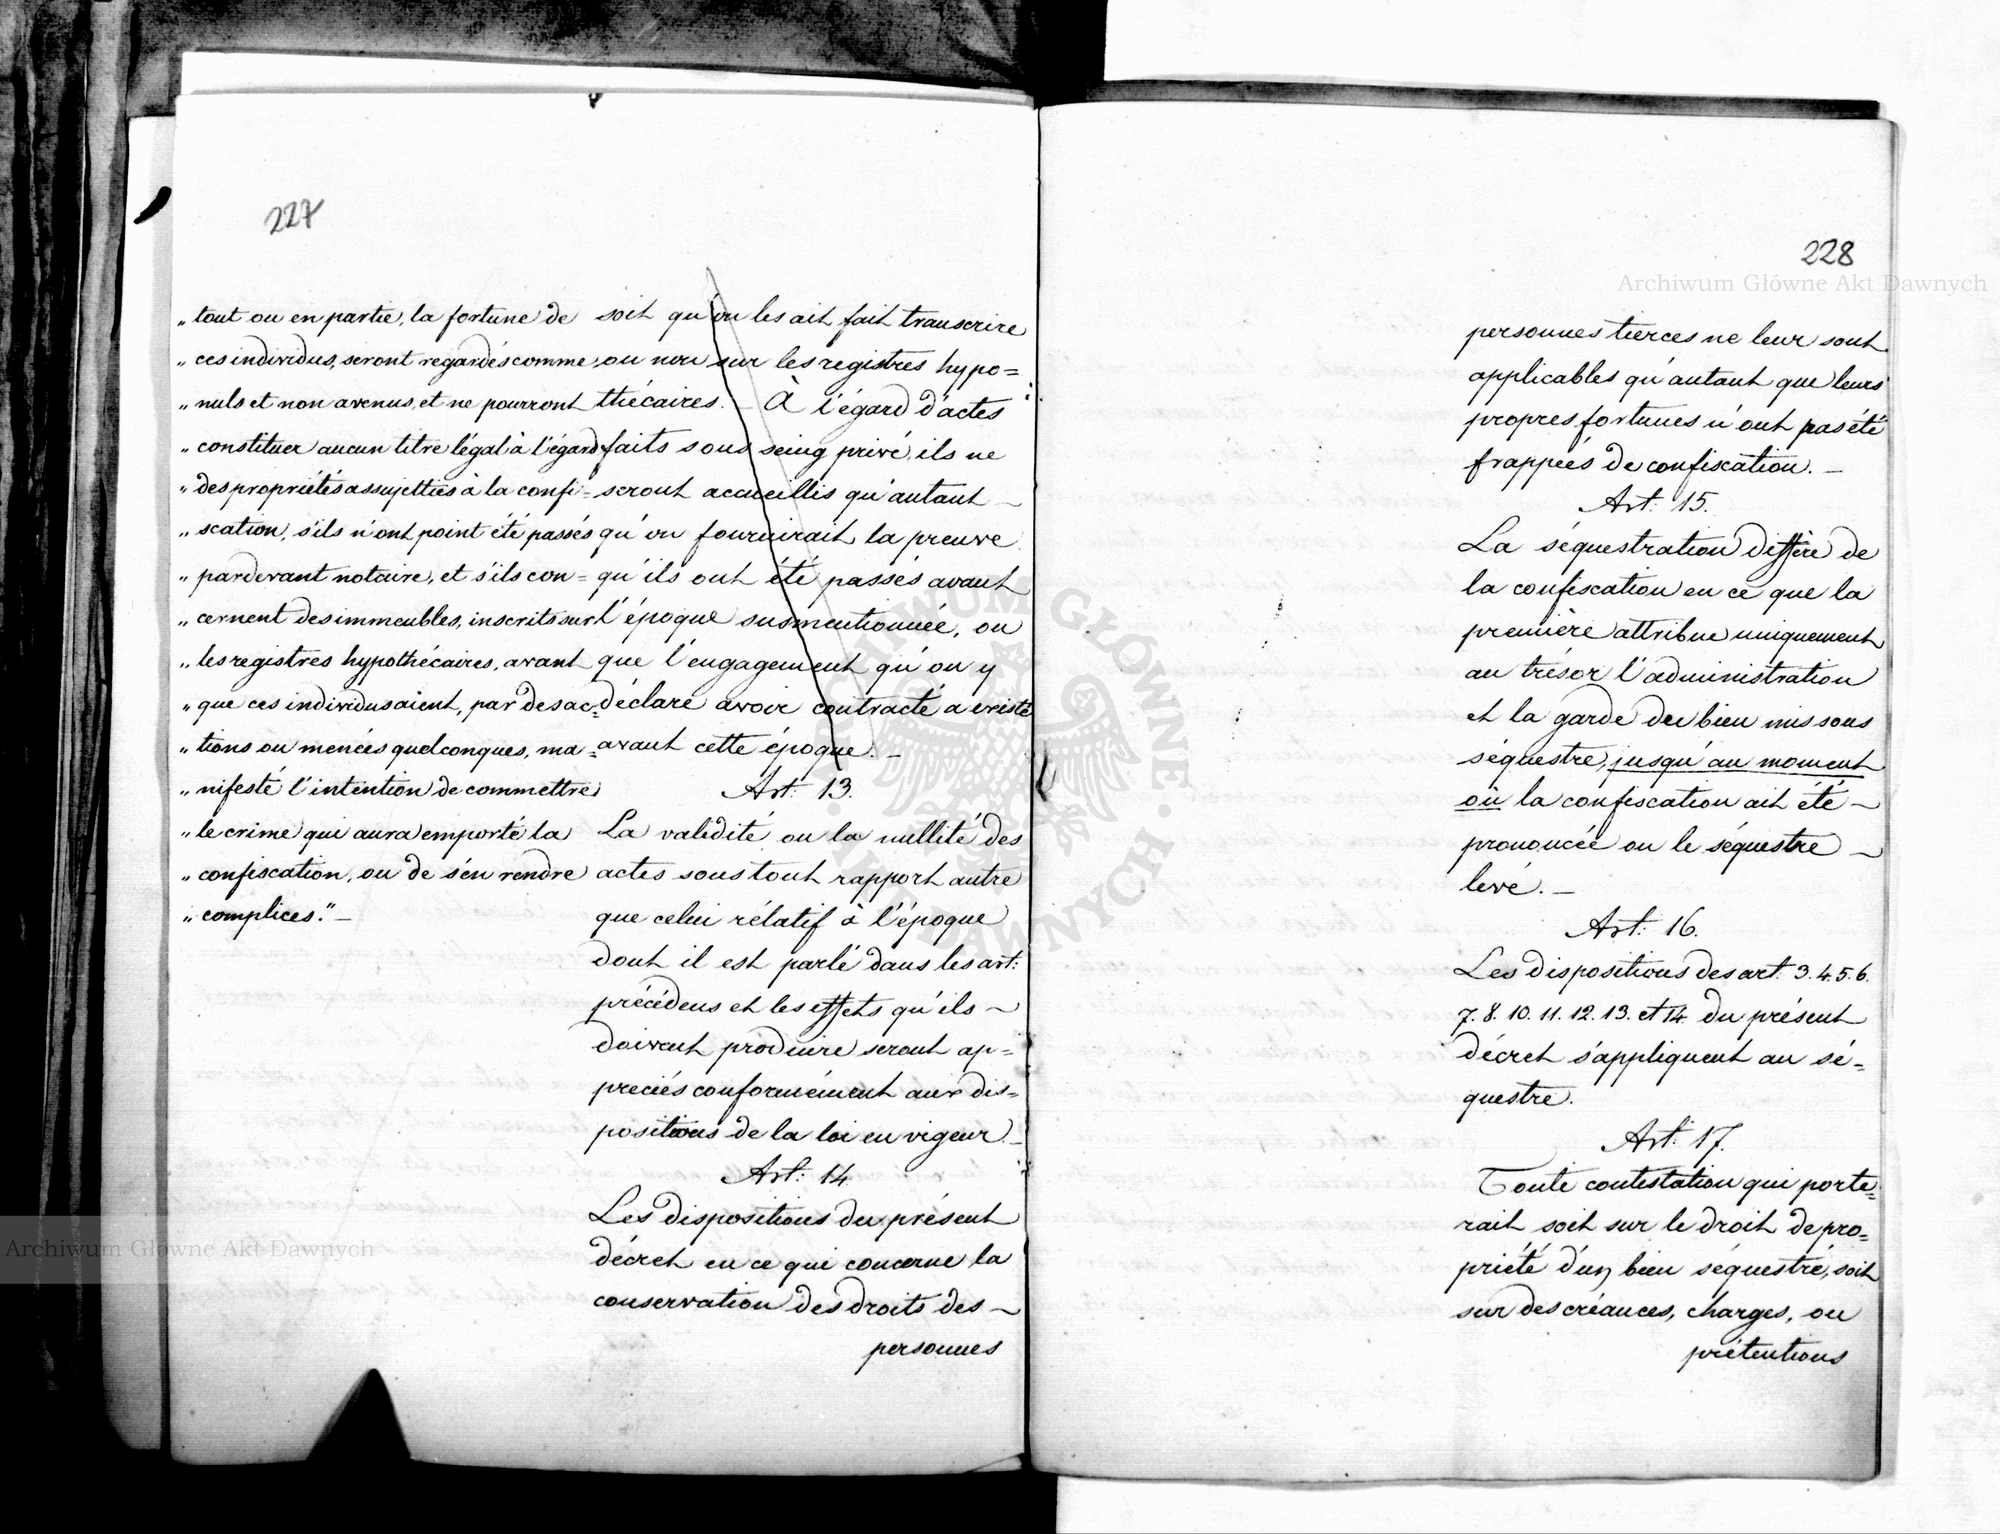 227
„ tout ou en partie, la fortune de
„ ces individus, seront regardés comme
„ nuls et non avenus, et ne pourront
„ constituer aucun titre légal à l'égard
„ des propriétés assujetties à la confi=
„ scation, s'ils n'ont point été passés
„ pardevant notaire, et s'ils con=
„ cernent des immeubles, inscrits sur
„ les registres hypothécaires, avant
„ que ces individus aient, par des ac=
„ tions ou menées quelconques, ma=
„ nifesté l'intention de commettre
„ le crime qui aura emporté la
„ confiscation, ou de s'en rendre
„ complices." —
soit qu'on les ait fait transcrire
ou non sur les registres hypo=
thécaires. — À l'égard d'actes
faits sous seing privé, ils ne
seront accueillis qu'autant —
qu'on fournirait la preuve
qu'ils ont été passés avant
l'époque susmentionnée, ou
que l'engagement qu'on y
déclare avoir contracté a existé
avant cette époque. —
Art: 13.
La validité ou la nullité des
actes sous tout rapport autre
que celui rélatif à l'époque
dont il est parlé dans les art:
précédens et les effets qu'ils —
doivent produire seront ap=
preciés conformément aux dis=
positions de la loi en vigeur. —
Art: 14.
Les dispositions du présent
décret en ce qui concerne la
conservation des droits des —
personnes
228
personnes tierces ne leur sont
applicables qu'autant que leurs
propres fortunes n'ont pas été
frappées de confiscation. —
Art: 15.
La séquestration diffère de
la confiscation en ce que la
première attribue uniquement
au trésor l'administration
et la garde du bien mis sous
séquestre, jusqu'au moment
où la confiscation ait été —
prononcée ou le séquestre —
levé. —
Art: 16.
Les dispositions des art: 3. 4. 5. 6.
7. 8. 10. 11. 12. 13. et 14. du présent
décret s'appliquent au sé=
questre.
Art: 17.
Toute contestation qui porte=
rait soit sur le droit de pro=
priété d'un bien séquestré, soit
sur des créances, charges, ou
prétentions
Archiwum Główne Akt Dawnych
Archiwum Główne Akt Dawnych
ARCHIWUM GŁÓWNE AKT DAWNYCH